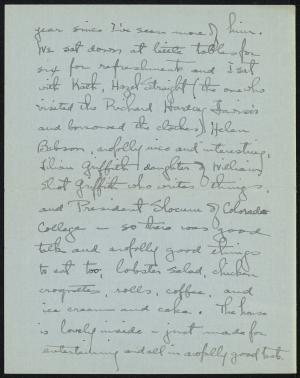 year since I've seen more of him.
We sat down at little tables for
six for refreshment and I sat
with Kath, Hazel Straight (the one who
visited the Richard Harding Davis's
and borrowed the clothes), Helen
Babson, awfully nice and interesting,
Griffith (daughter of William
Griffith who writes things,
and President Slocum of Colorado
College — so there was good
talk and awfully good things
to eat too, lobster salad, chicken
croquettes, rolls, coffee, and
ice cream and cake. The house
is lovely inside – just made for
entertaining and all in awfully good taste.